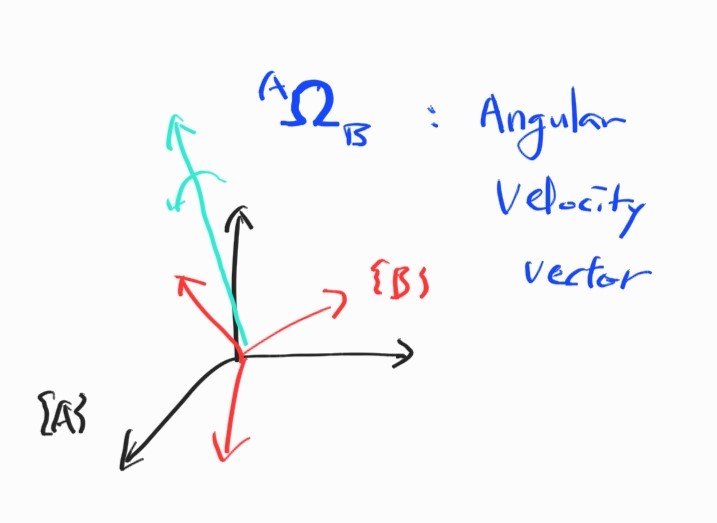 ᴬΩ_B : Angular
Velocity
vector
{B}
{A}